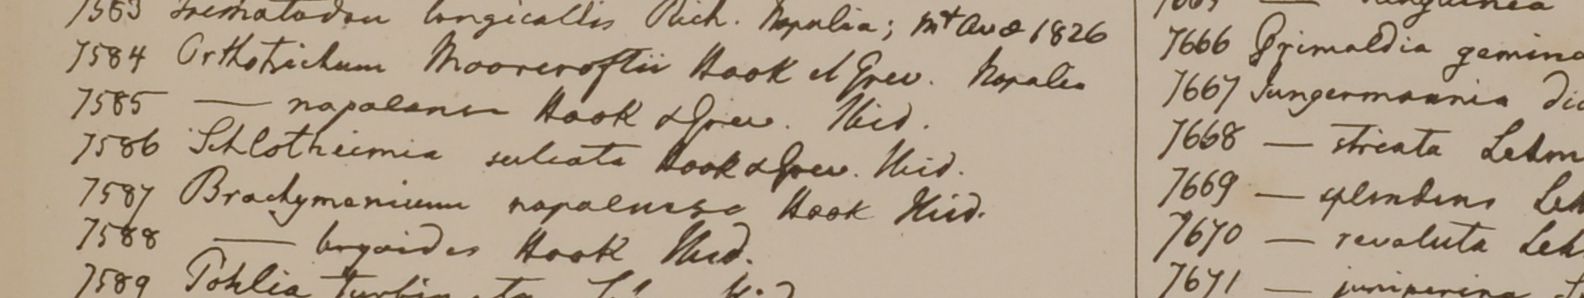 7583 Trematodon longicollis Rich. Napalia; Mt Aug 1826
7584 Orthotrichum Moorcroftii Hook et Grev. Napalia
7585 — napalense Hook & Grev. Ibid.
7586 Schlotheimia sulcata Hook & Grev. Ibid.
7587 Brachymenium napalense Hook Ibid.
7588 — bryoides Hook Ibid.
7589 Pohlia
7665 — sanguinea
7666 Grimaldia gemino
7667 Jungermannia dic
7668 — striata Lehm
7669 — splendens Leh
7670 — revoluta Leh
7671 — juniperina